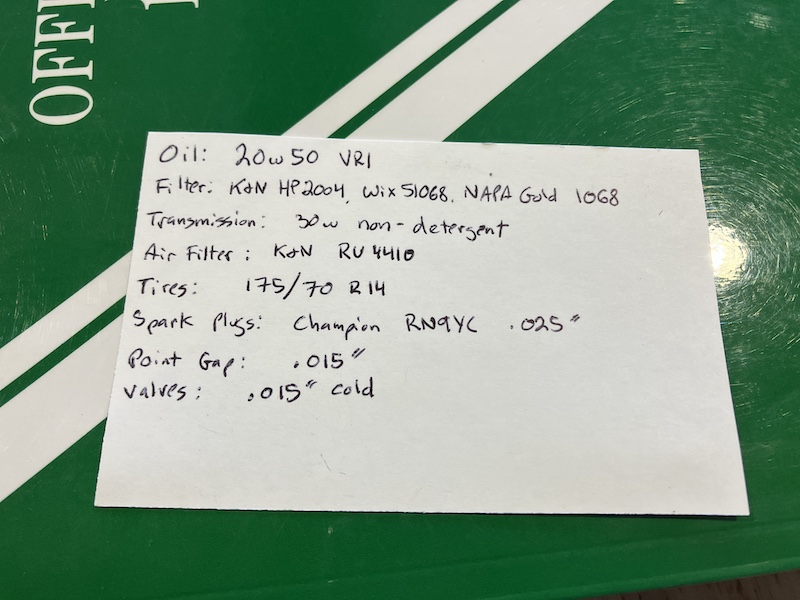 OFFI
Oil: 20w50 VR1
Filter: K&N HP2004, Wix 51068, NAPA Gold 1068
Transmission: 30w non-detergent
Air Filter: K&N RU 4410
Tires: 175/70 R14
Spark Plugs: Champion RN9YC .025"
Point Gap: .015"
Valves: .015" cold